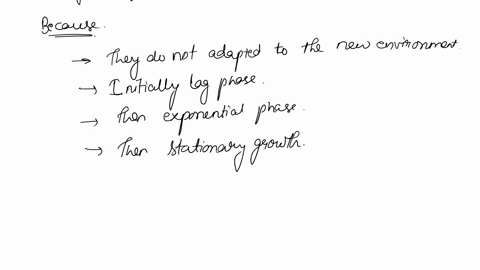 Because.
→ They do not adapted to the new environment.
→ Initially lag phase.
→ then exponential phase.
→ Then stationary growth.